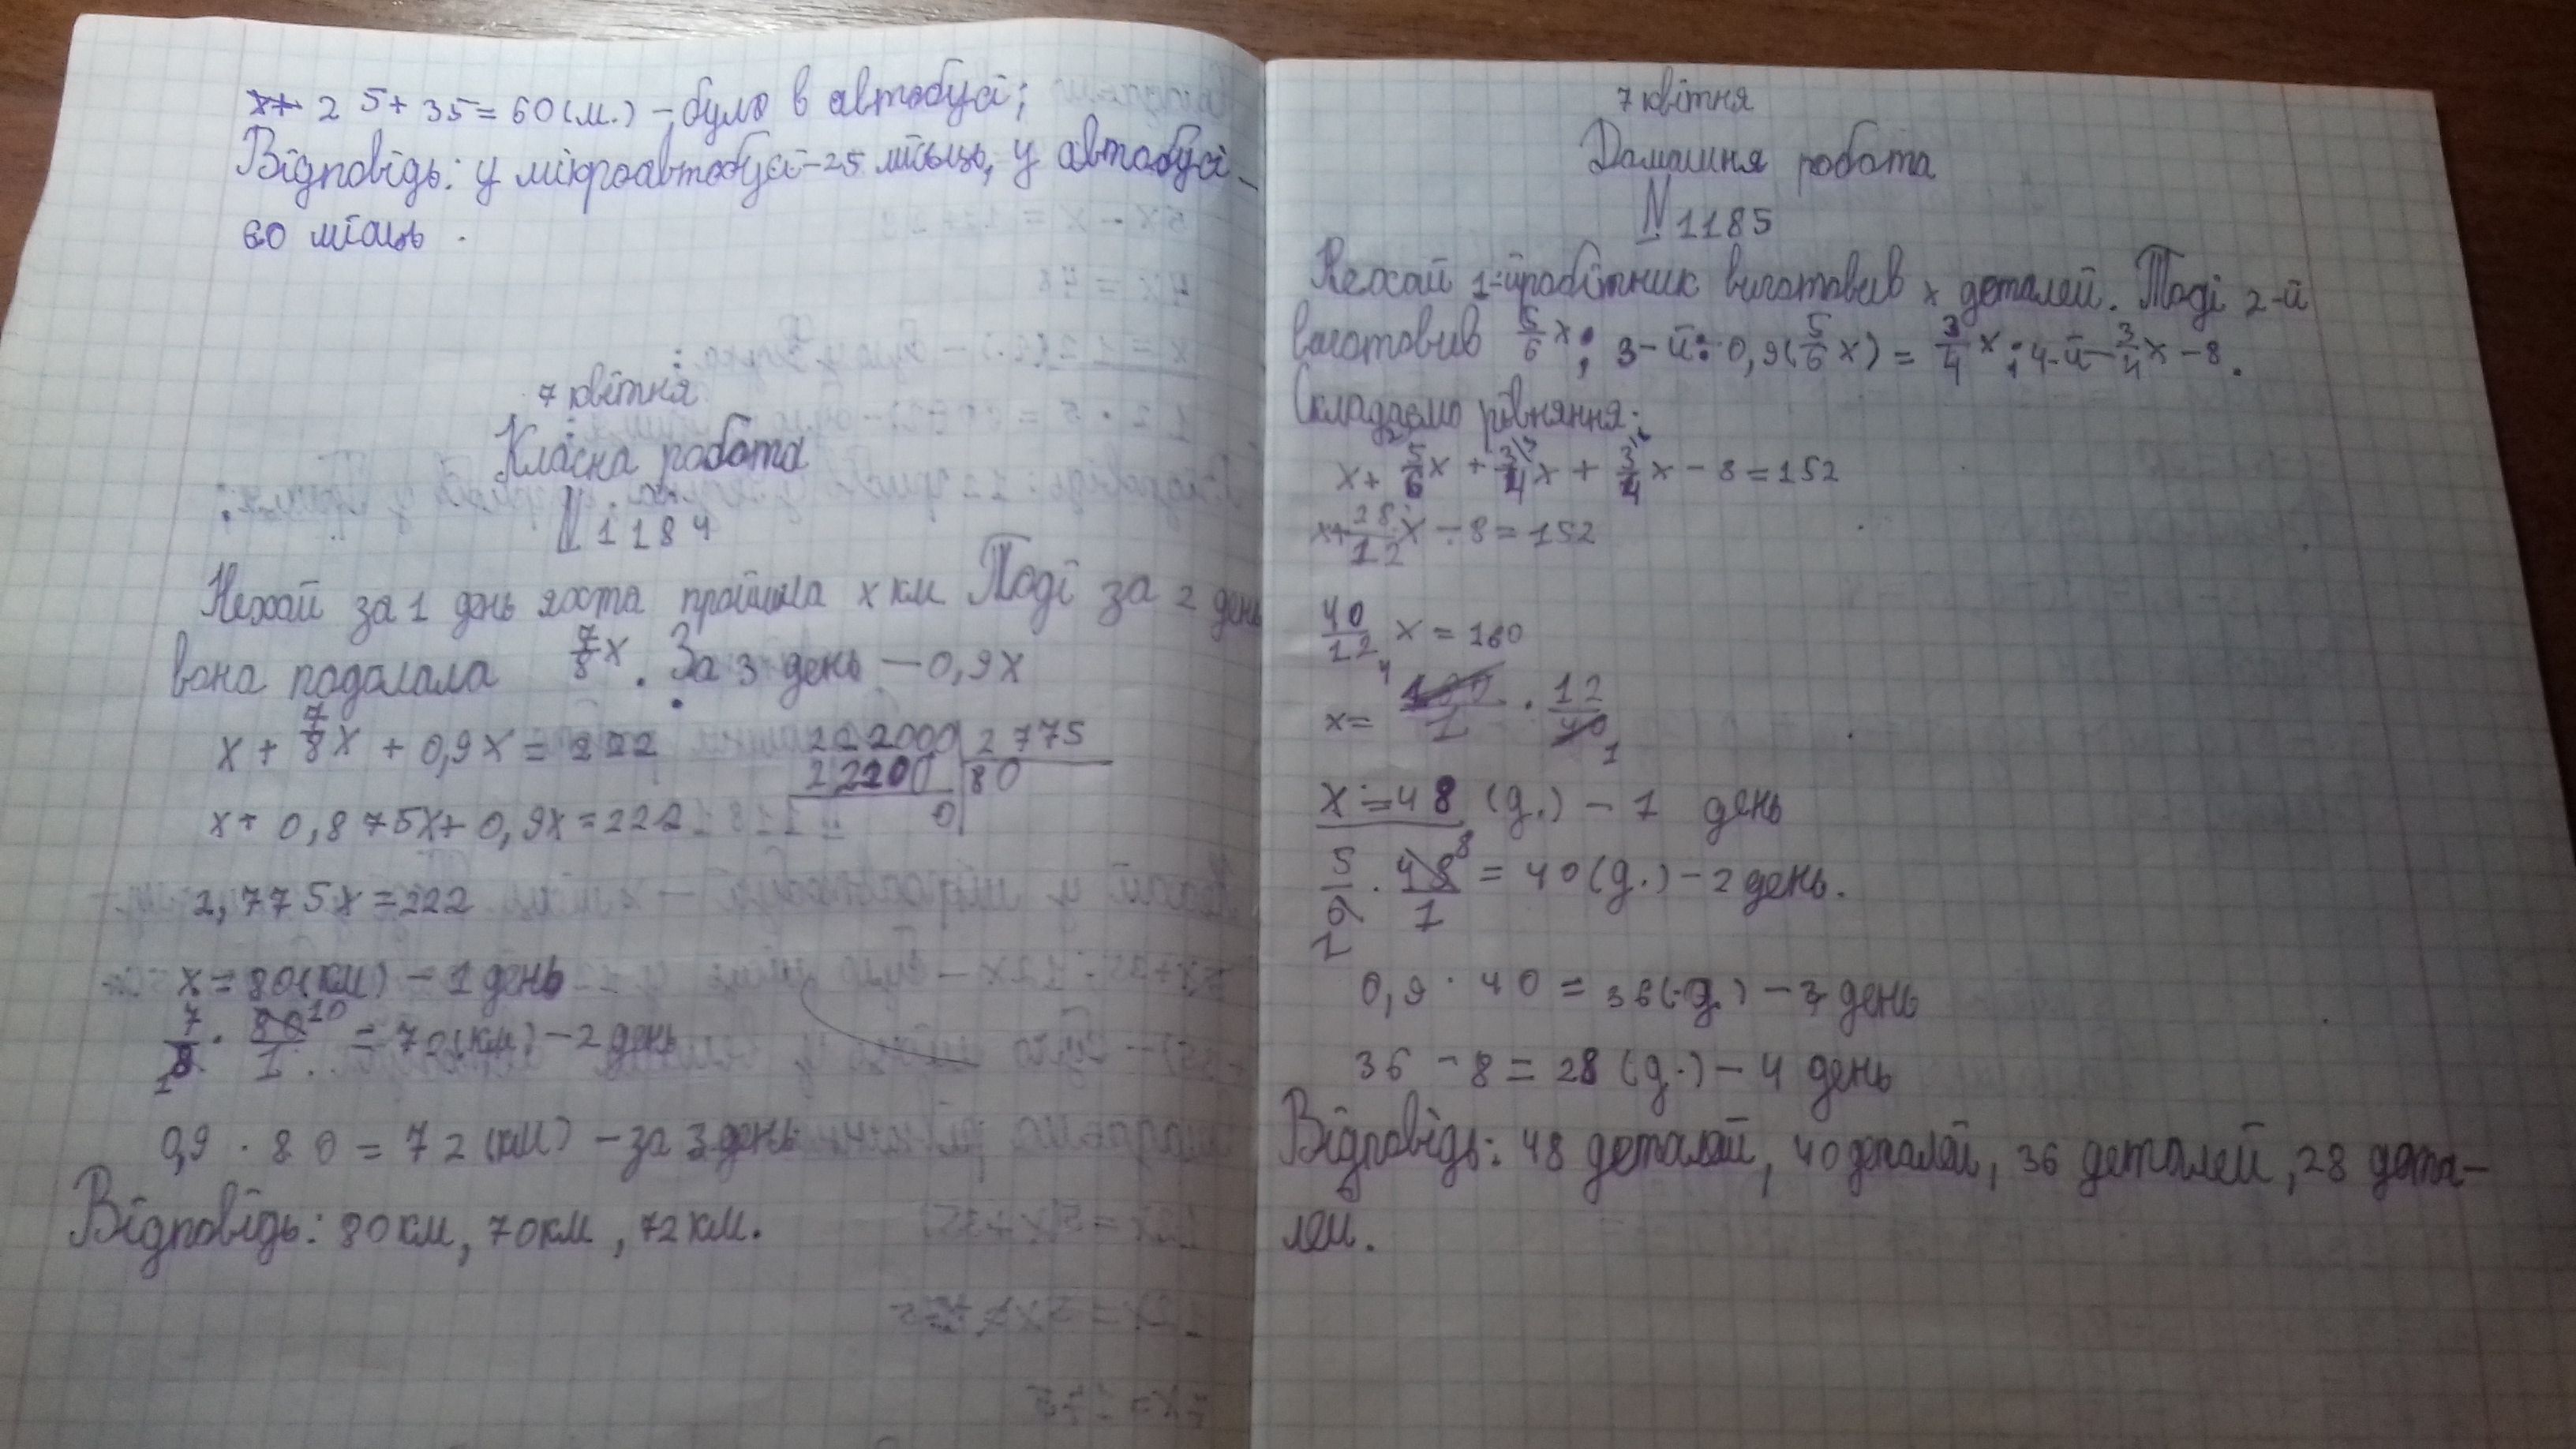 25+35=60(м.) – було в автобусі;
Відповідь: у мікроавтобусі–25 місьць, у автобусі–
60 місць.
7 квітня
Класна робота
N 1184
Нехай за 1 день яхта пройшла х км Тоді за 2 день
вона подолала 7/8x. За 3 день – 0,9х
x + 7/8x + 0,9x = 222
222000 | 2775
22200 | 80
0
x+ 0,875x+ 0,9x=222
2,775x=222
x=80(км) – 1 день
7/8 · 80/1 = 70(км) – 2 день
1 10
0,9 · 80 = 72(км) – за 3 день
Відповідь: 80км, 70км, 72км.
7 квітня
Домашня робота
N 1185
Нехай 1-йробітник виготовив х деталей. Тоді 2-й
виготовив 5/6x; 3-й: 0,9(5/6x) = 3/4x; 4-й–3/4x–8.
Складаємо рівняння:
x+ 5/6x + 3/4x + 3/4x – 8=152
x+28/12x – 8=152
40/12 x = 160
x= 160/1 · 12/40
4 1
x=48 (д.) – 1 день
5/6 · 48/1 = 40(д.) – 2 день.
1 8
0,9 · 40 = 36(д.) – 3 день
36 – 8 = 28 (д.) – 4 день
Відповідь: 48 деталей, 40деталей, 36 деталей, 28 дета–
лей.